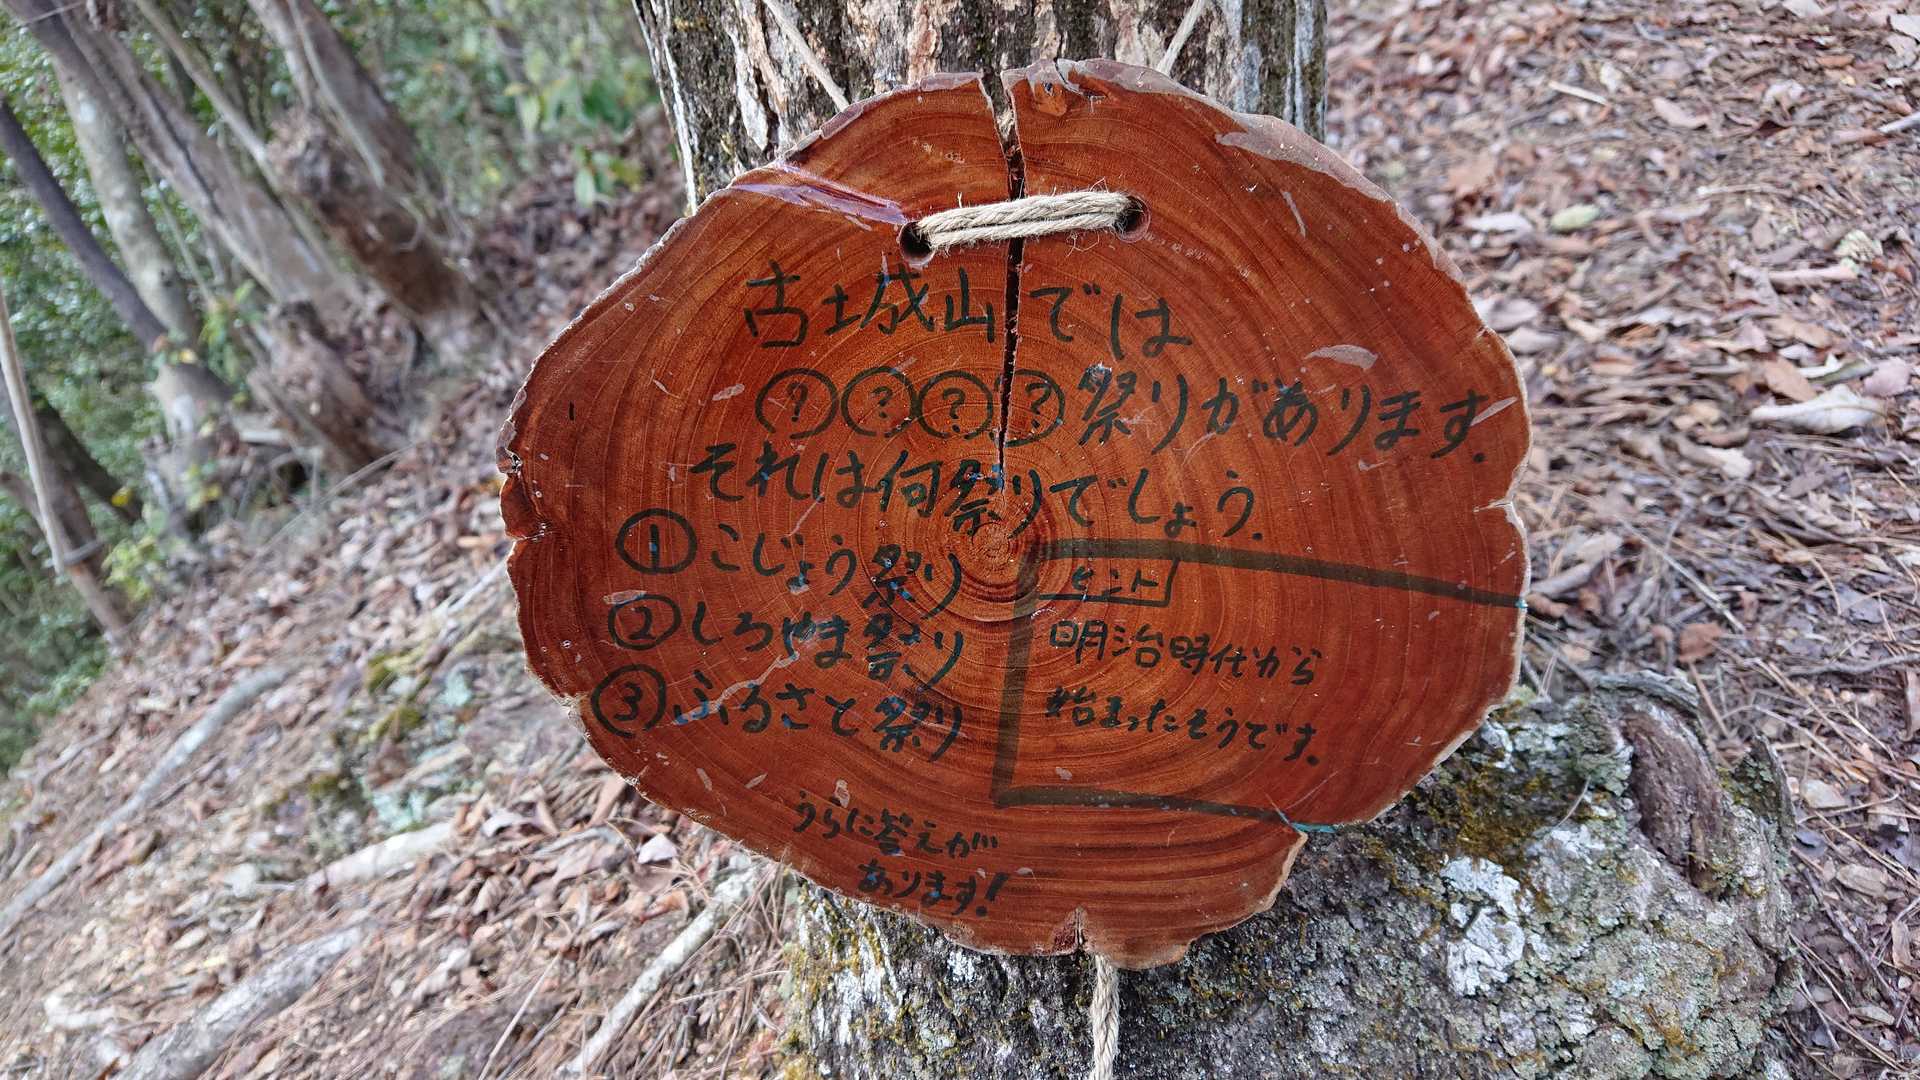 古城山では
????祭りがあります.
それは何祭りでしょう.
①こじょう祭り
②しろやま祭り
③ふるさと祭り
ヒント
明治時代から
始まったそうです.
うらに答えが
あります!